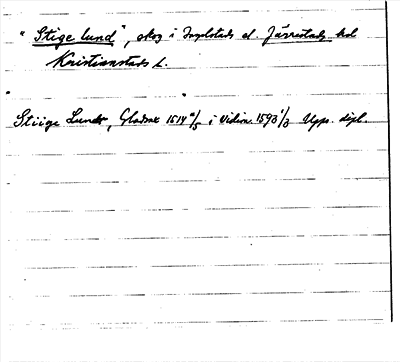 "Stige lund", skog i Ingelstads el. Järrestads hd
Kristianstads L.
Stiige Lundr, Gladsax 1514 /5 i Vidim. 1593 1/3 Upps. dipl.